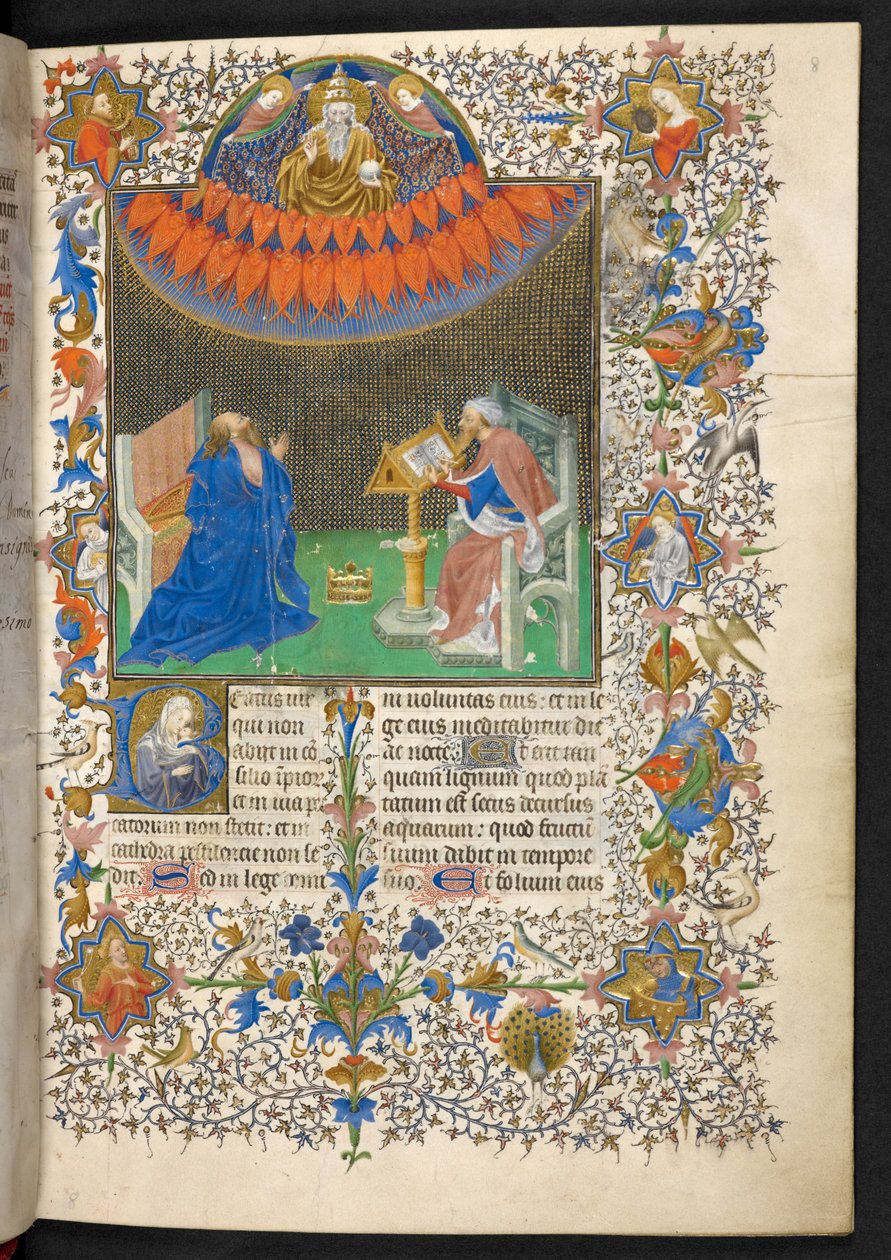 8
Beatus uir
qui non
abiit in cō
silio īpiorꝝ
et in uia pec
catorum non stetit: et in
cathedra pestilencie non se
dit. Sed in lege domi
ni uoluntas eius: et in le
ge eius meditabitur die
ac nocte. Et erit tan
quam lignum quod plā
tatum est secus decursus
aquarum: quod fructū
suum dabit in tempore
suo. Et folium eius
8